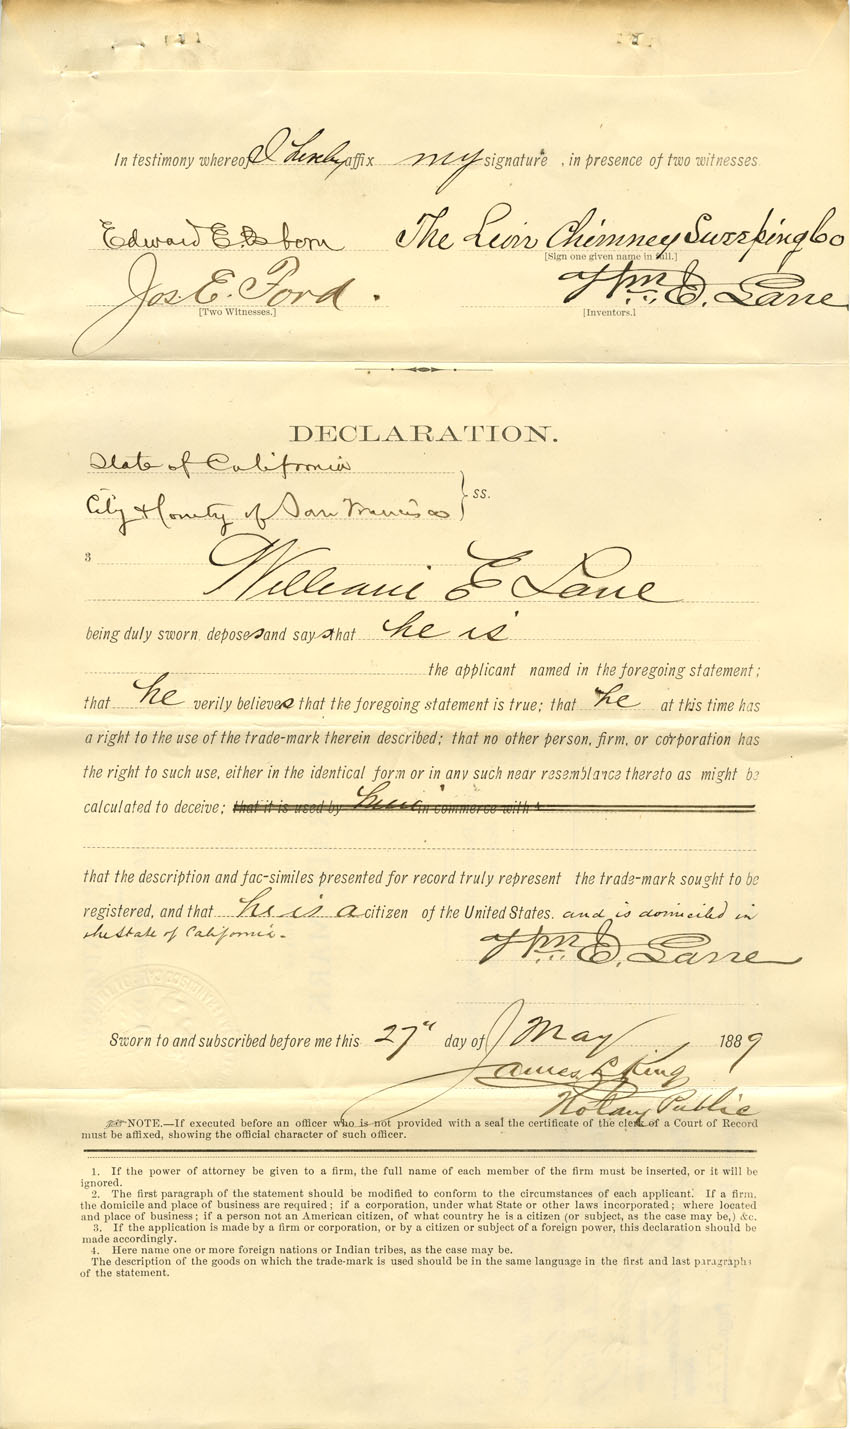 In testimony whereof I hereby affix my signature, in presence of two witnesses.
Edward E. Osborn The Lion Chimney Sweeping Co
[Sign one given name in full.]
Jos. E. Ford. Wm. E. Lane
[Two Witnesses.] [Inventors.]
DECLARATION.
State of California
City & County of San Francisco } ss.
3
William E Lane
being duly sworn, deposes and says that he is
the applicant named in the foregoing statement;
that he verily believes that the foregoing statement is true; that he at this time has
a right to the use of the trade-mark therein described; that no other person, firm, or corporation has
the right to such use, either in the identical form or in any such near resemblance thereto as might be
calculated to deceive; that it is used by him in commerce with 4
that the description and fac-similes presented for record truly represent the trade-mark sought to be
registered, and that he is a citizen of the United States. and is domiciled in
the State of California.
Wm. E. Lane
Sworn to and subscribed before me this 27" day of May 1889
James L King
Notary Public
☞NOTE.—If executed before an officer who is not provided with a seal the certificate of the clerk of a Court of Record
must be affixed, showing the official character of such officer.
1. If the power of attorney be given to a firm, the full name of each member of the firm must be inserted, or it will be
ignored.
2. The first paragraph of the statement should be modified to conform to the circumstances of each applicant. If a firm,
the domicile and place of business are required; if a corporation, under what State or other laws incorporated; where located
and place of business; if a person not an American citizen, of what country he is a citizen (or subject, as the case may be,) &c.
3. If the application is made by a firm or corporation, or by a citizen or subject of a foreign power, this declaration should be
made accordingly.
4. Here name one or more foreign nations or Indian tribes, as the case may be.
The description of the goods on which the trade-mark is used should be in the same language in the first and last paragraphs
of the statement.